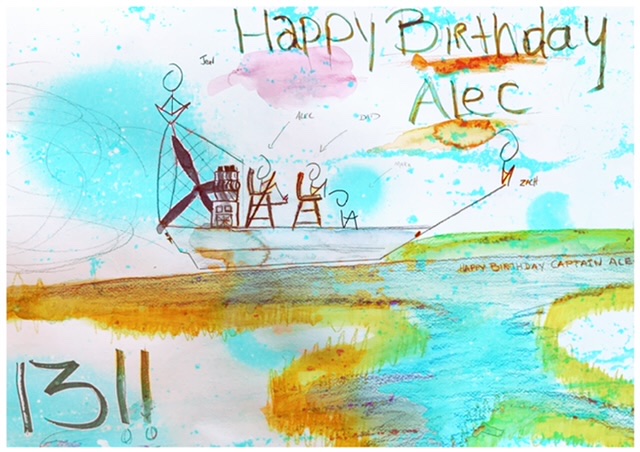 Happy Birthday
Alec
Joel
ALEC
DAD
ZACH
HAPPY BIRTHDAY CAPTAIN ALE
13!!